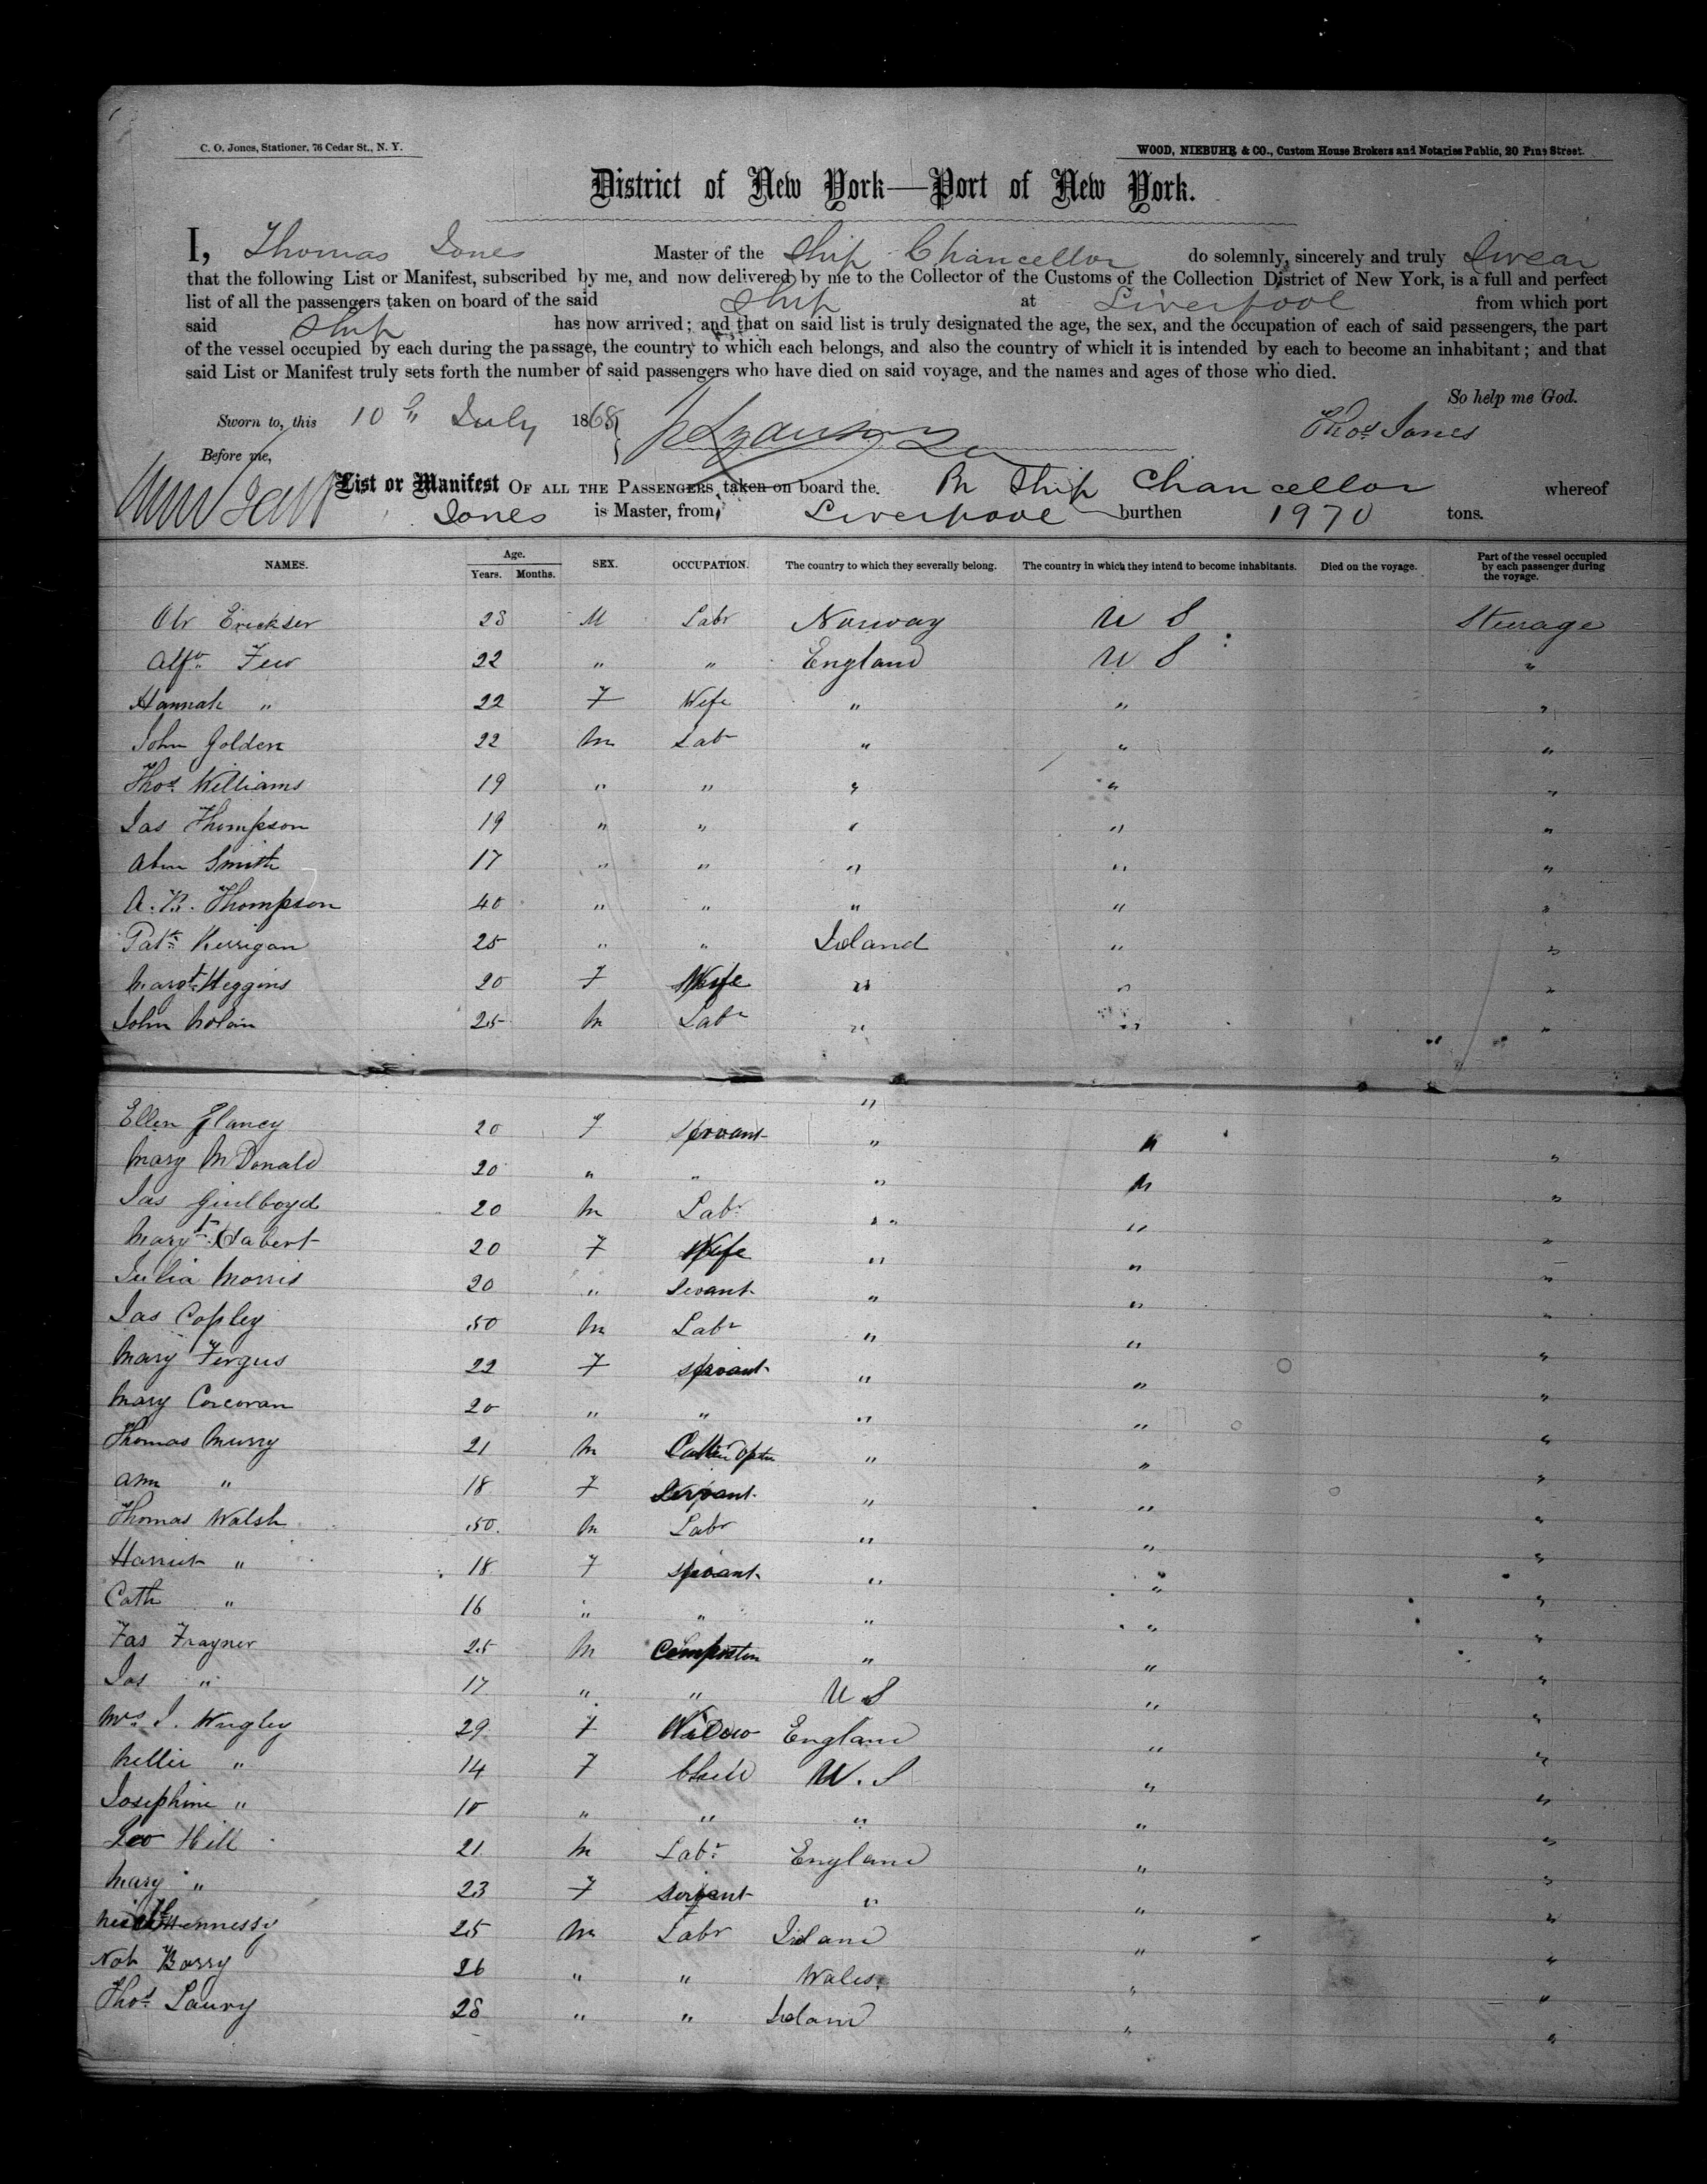 C. O. Jones, Stationer, 76 Cedar St., N. Y.
WOOD, NIEBUHR & CO., Custom House Brokers and Notaries Public, 20 Pine Street.
District of New York—Port of New York.
I, Thomas Jones Master of the Ship Chancellor do solemnly, sincerely and truly Swear
that the following List or Manifest, subscribed by me, and now delivered by me to the Collector of the Customs of the Collection District of New York, is a full and perfect
list of all the passengers taken on board of the said Ship at Liverpool from which port
said Ship has now arrived; and that on said list is truly designated the age, the sex, and the occupation of each of said passengers, the part
of the vessel occupied by each during the passage, the country to which each belongs, and also the country of which it is intended by each to become an inhabitant; and that
said List or Manifest truly sets forth the number of said passengers who have died on said voyage, and the names and ages of those who died.
So help me God.
Sworn to, this 10th July 1868 Thos Jones
Before me,
List or Manifest OF ALL THE PASSENGERS taken on board the Ship Chancellor whereof
Jones is Master, from Liverpool burthen 1970 tons.
NAMES. Age. Years. Months. SEX. OCCUPATION. The country to which they severally belong. The country in which they intend to become inhabitants. Died on the voyage. Part of the vessel occupied by each passenger during the voyage.
Erickser 28 M Labr Norway U S Steerage
Alfd Few 22 " " England U S "
Hannah " 22 F Wife " " "
John Golden 22 M Labr " " "
Thos Williams 19 " " " " "
Jas Thompson 19 " " " " "
Smith 17 " " " " "
A. B. Thompson 40 " " " " "
Patk Kerrigan 25 " " Ireland " "
Margt Heggins 20 F Wife " " "
John Nolan 25 M Labr " " "
"
Ellen Glancy 20 F Servant " " "
Mary McDonald 20 " " " " "
Jas 20 M Labr " " "
Margt 20 F Wife " " "
Julia Morris 20 " Servant " " "
Jas Copley 50 M Labr " " "
Mary Fergus 22 F Servant " " "
Mary Corcoran 20 " " " " "
Thomas Murry 21 M " " "
Ann " 18 F Servant " " "
Thomas Walsh 50 M Labr " " "
Harriet " 18 F Servant " " "
Cath " 16 " " " " "
Jas Frayner 25 M Compositor " " "
Jos " 17 " " U S " "
Mrs J. Wrigley 29 F Widow England " "
Nellie " 14 F Child U. S " "
Josephine " 10 " " " " "
Geo Hill 21 M Labr England " "
Mary " 23 F Servant " " "
Hennessy 25 M Labr Ireland " "
Barry 26 " " Wales " "
Thos Lavry 28 " " Ireland " "